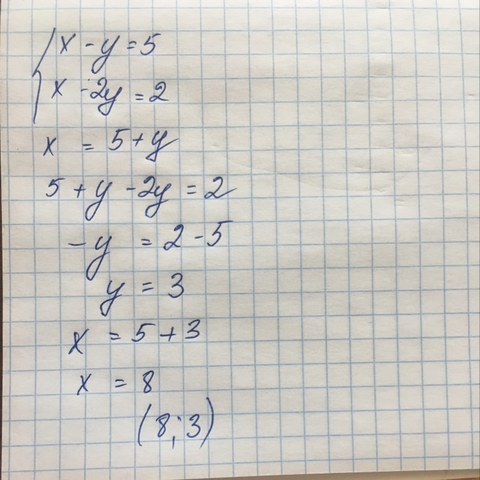 { x - y = 5
x - 2y = 2
x = 5 + y
5 + y - 2y = 2
- y = 2 - 5
y = 3
x = 5 + 3
x = 8
(8; 3)